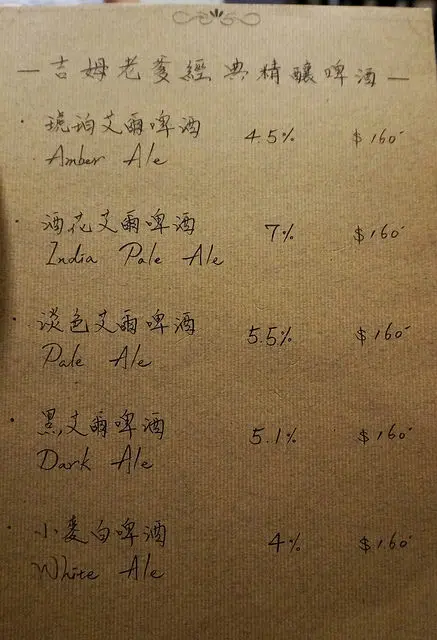 — 吉姆老爹經典精釀啤酒 —
· 琥珀艾爾啤酒 4.5% $160
Amber Ale
· 酒花艾爾啤酒 7% $160
India Pale Ale
· 淡色艾爾啤酒 5.5% $160
Pale Ale
· 黑艾爾啤酒 5.1% $160
Dark Ale
· 小麥白啤酒 4% $160
White Ale